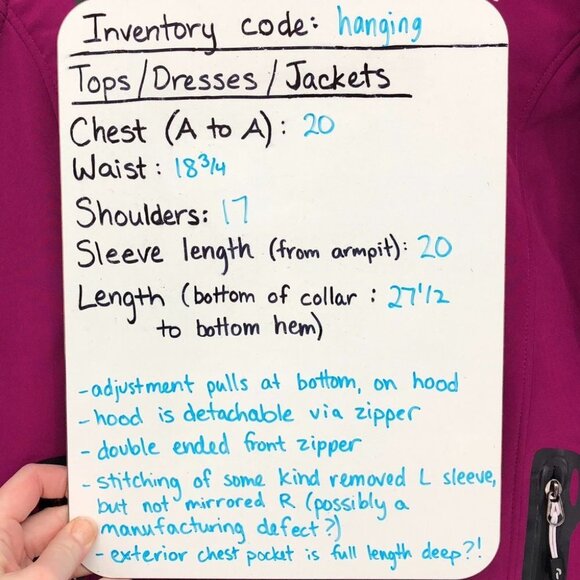 Inventory code: hanging
Tops/Dresses/Jackets
Chest (A to A): 20
Waist: 18 3/4
Shoulders: 17
Sleeve length (from armpit): 20
Length (bottom of collar : 27 1/2
to bottom hem)
-adjustment pulls at bottom, on hood
-hood is detachable via zipper
- double ended front zipper
- stitching of some kind removed L sleeve,
but not mirrored R (possibly a
manufacturing defect?)
- exterior chest pocket is full length deep?!